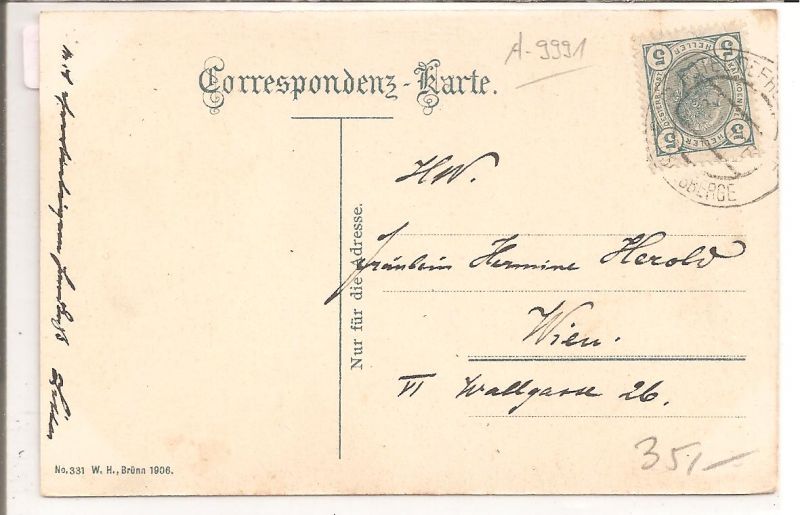 A-9991
Correspondenz-Karte.
5 HELLER 5
5 HELLER 5
BERGE
HW.
Nur für die Adresse.
Fräulein Hermine Herold
Wien.
VI Wallgasse 26.
35,—
No. 331 W. H., Brünn 1906.